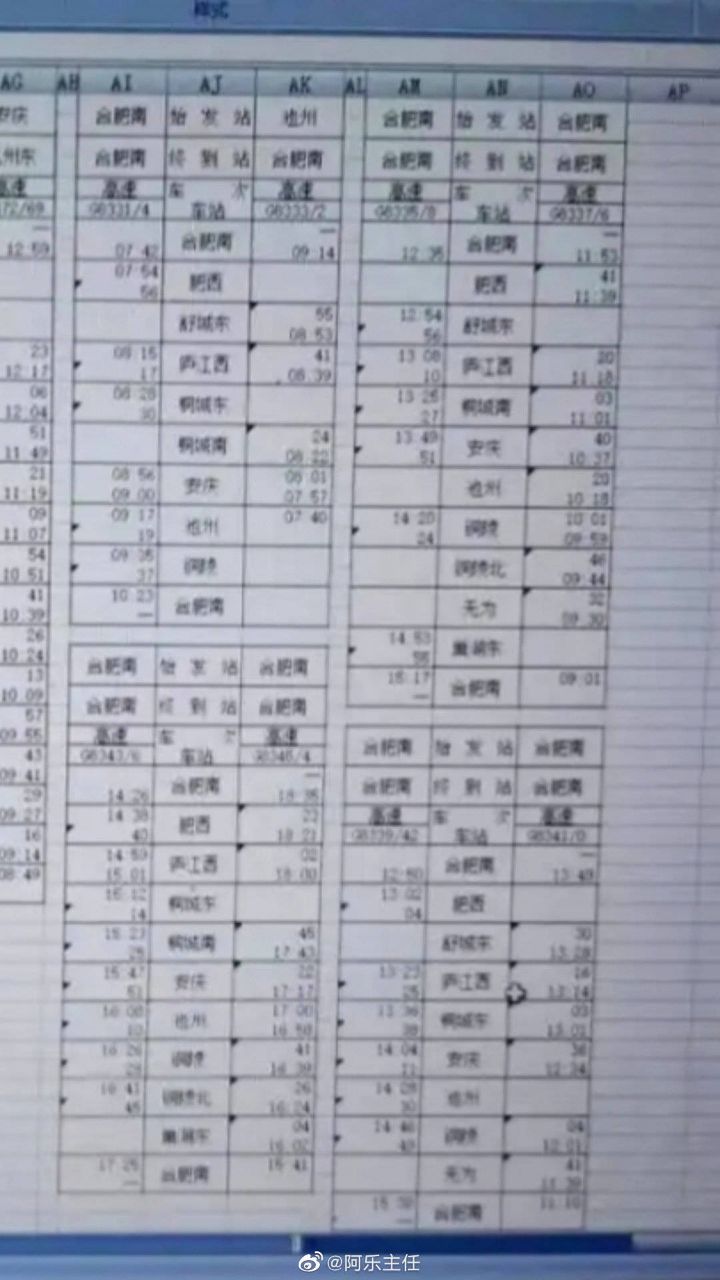 样式
AG AH AI AJ AK AL AM AN AO AP
安庆 合肥南 始发站 池州 合肥南 始发站 合肥南
州东 合肥南 终到站 合肥南 合肥南 终到站 合肥南
高速 高速 车次 高速 高速 车次 高速
G8331/4 车站 G8333/2 G8335/8 车站 G8337/6
12 59 07 42 合肥南 一 09 14 12 35 合肥南 一 11 53
07 54 56 肥西 肥西 41 11 39
舒城东 55 08 53 12 54 56 舒城东
23 12 17 08 15 17 庐江西 41 08 39 13 08 10 庐江西 20 11 18
06 12 04 08 28 30 桐城东 13 25 27 桐城南 03 11 01
51 11 49 桐城南 24 08 22 13 49 51 安庆 40 10 37
21 11 19 08 56 09 00 安庆 08 01 07 57 池州 20 10 18
09 11 07 09 17 19 池州 07 40 14 20 24 铜陵 10 01 09 59
54 10 51 09 35 37 铜陵 铜陵北 46 09 44
41 10 39 10 23 一 合肥南 无为 32 09 30
26 10 24 14 53 55 巢湖东
13 10 09 合肥南 始发站 合肥南 15 17 一 合肥南 09 01
57 09 55 合肥南 终到站 合肥南
43 09 41 高速 车次 高速 合肥南 始发站 合肥南
G8343/6 车站 G8345/4 合肥南 终到站 合肥南
29 09 27 14 26 合肥南 一 18 35 高速 车次 高速
16 09 14 14 38 40 肥西 23 18 21 G8339/42 车站 G8341/0
08 49 14 59 15 01 庐江西 02 18 00 12 50 合肥南 一 13 49
15 12 14 桐城东 13 02 04 肥西
15 23 25 桐城南 45 17 43 舒城东 30 13 28
15 47 51 安庆 22 17 17 13 23 25 庐江西 16 13 14
16 08 10 池州 17 00 16 58 13 36 38 桐城东 03 13 01
16 26 28 铜陵 41 16 39 14 04 安庆 12 34
16 41 45 铜陵北 26 16 24 14 28 30 池州
巢湖东 04 16 02 14 46 48 铜陵 04 12 01
17 25 一 合肥南 15 41 无为 41 11 39
合肥南 11 10
@阿乐主任